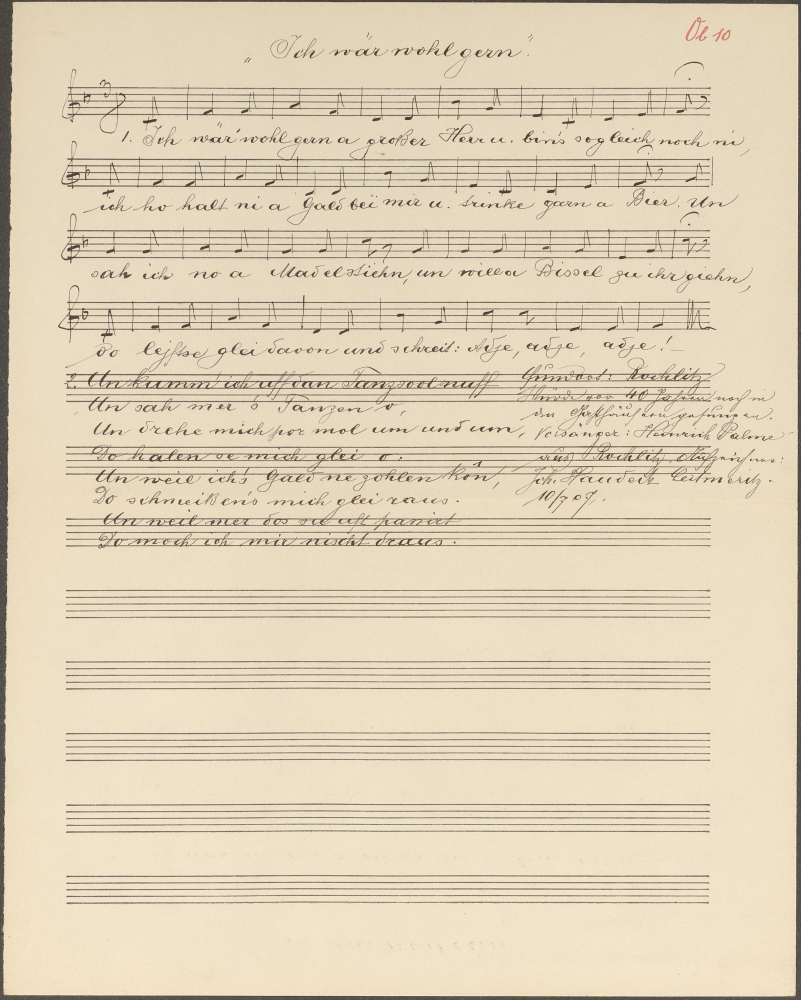 Ob 10
„Ich wär wohl gern".
1. Ich wär' wohl gern a großer Herr u. bin's sogleich noch ni,
ich ho halt ni a Gald bei mir u. trinke garn a Bier. Un
sah ich no a Madel stiehn, un will a Bissel zu ihr giehn,
do lejftse glei davon und schreit: Adje, adje, adje! –
2. Un kumm ich uff dan Tanzsool nuff
Un sah mer's Tanzen o,
Un drehe mich por mol um und um,
Do halen se mich glei o.
Un weil ich's Gald ne zohlen kon,
Do schmeißen's mich glei raus.
Un weil mer dos su uft passirt
Do moch ich mir nischt draus.
Fundort: Rochlitz
Wurde vor 40 Jahren noch in
den Gasthäusern gesungen.
Vorsänger: Heinrich Palme
aus Rochlitz. Aufzeichner:
Joh. Haudeck Leitmeritz.
10/7 07.